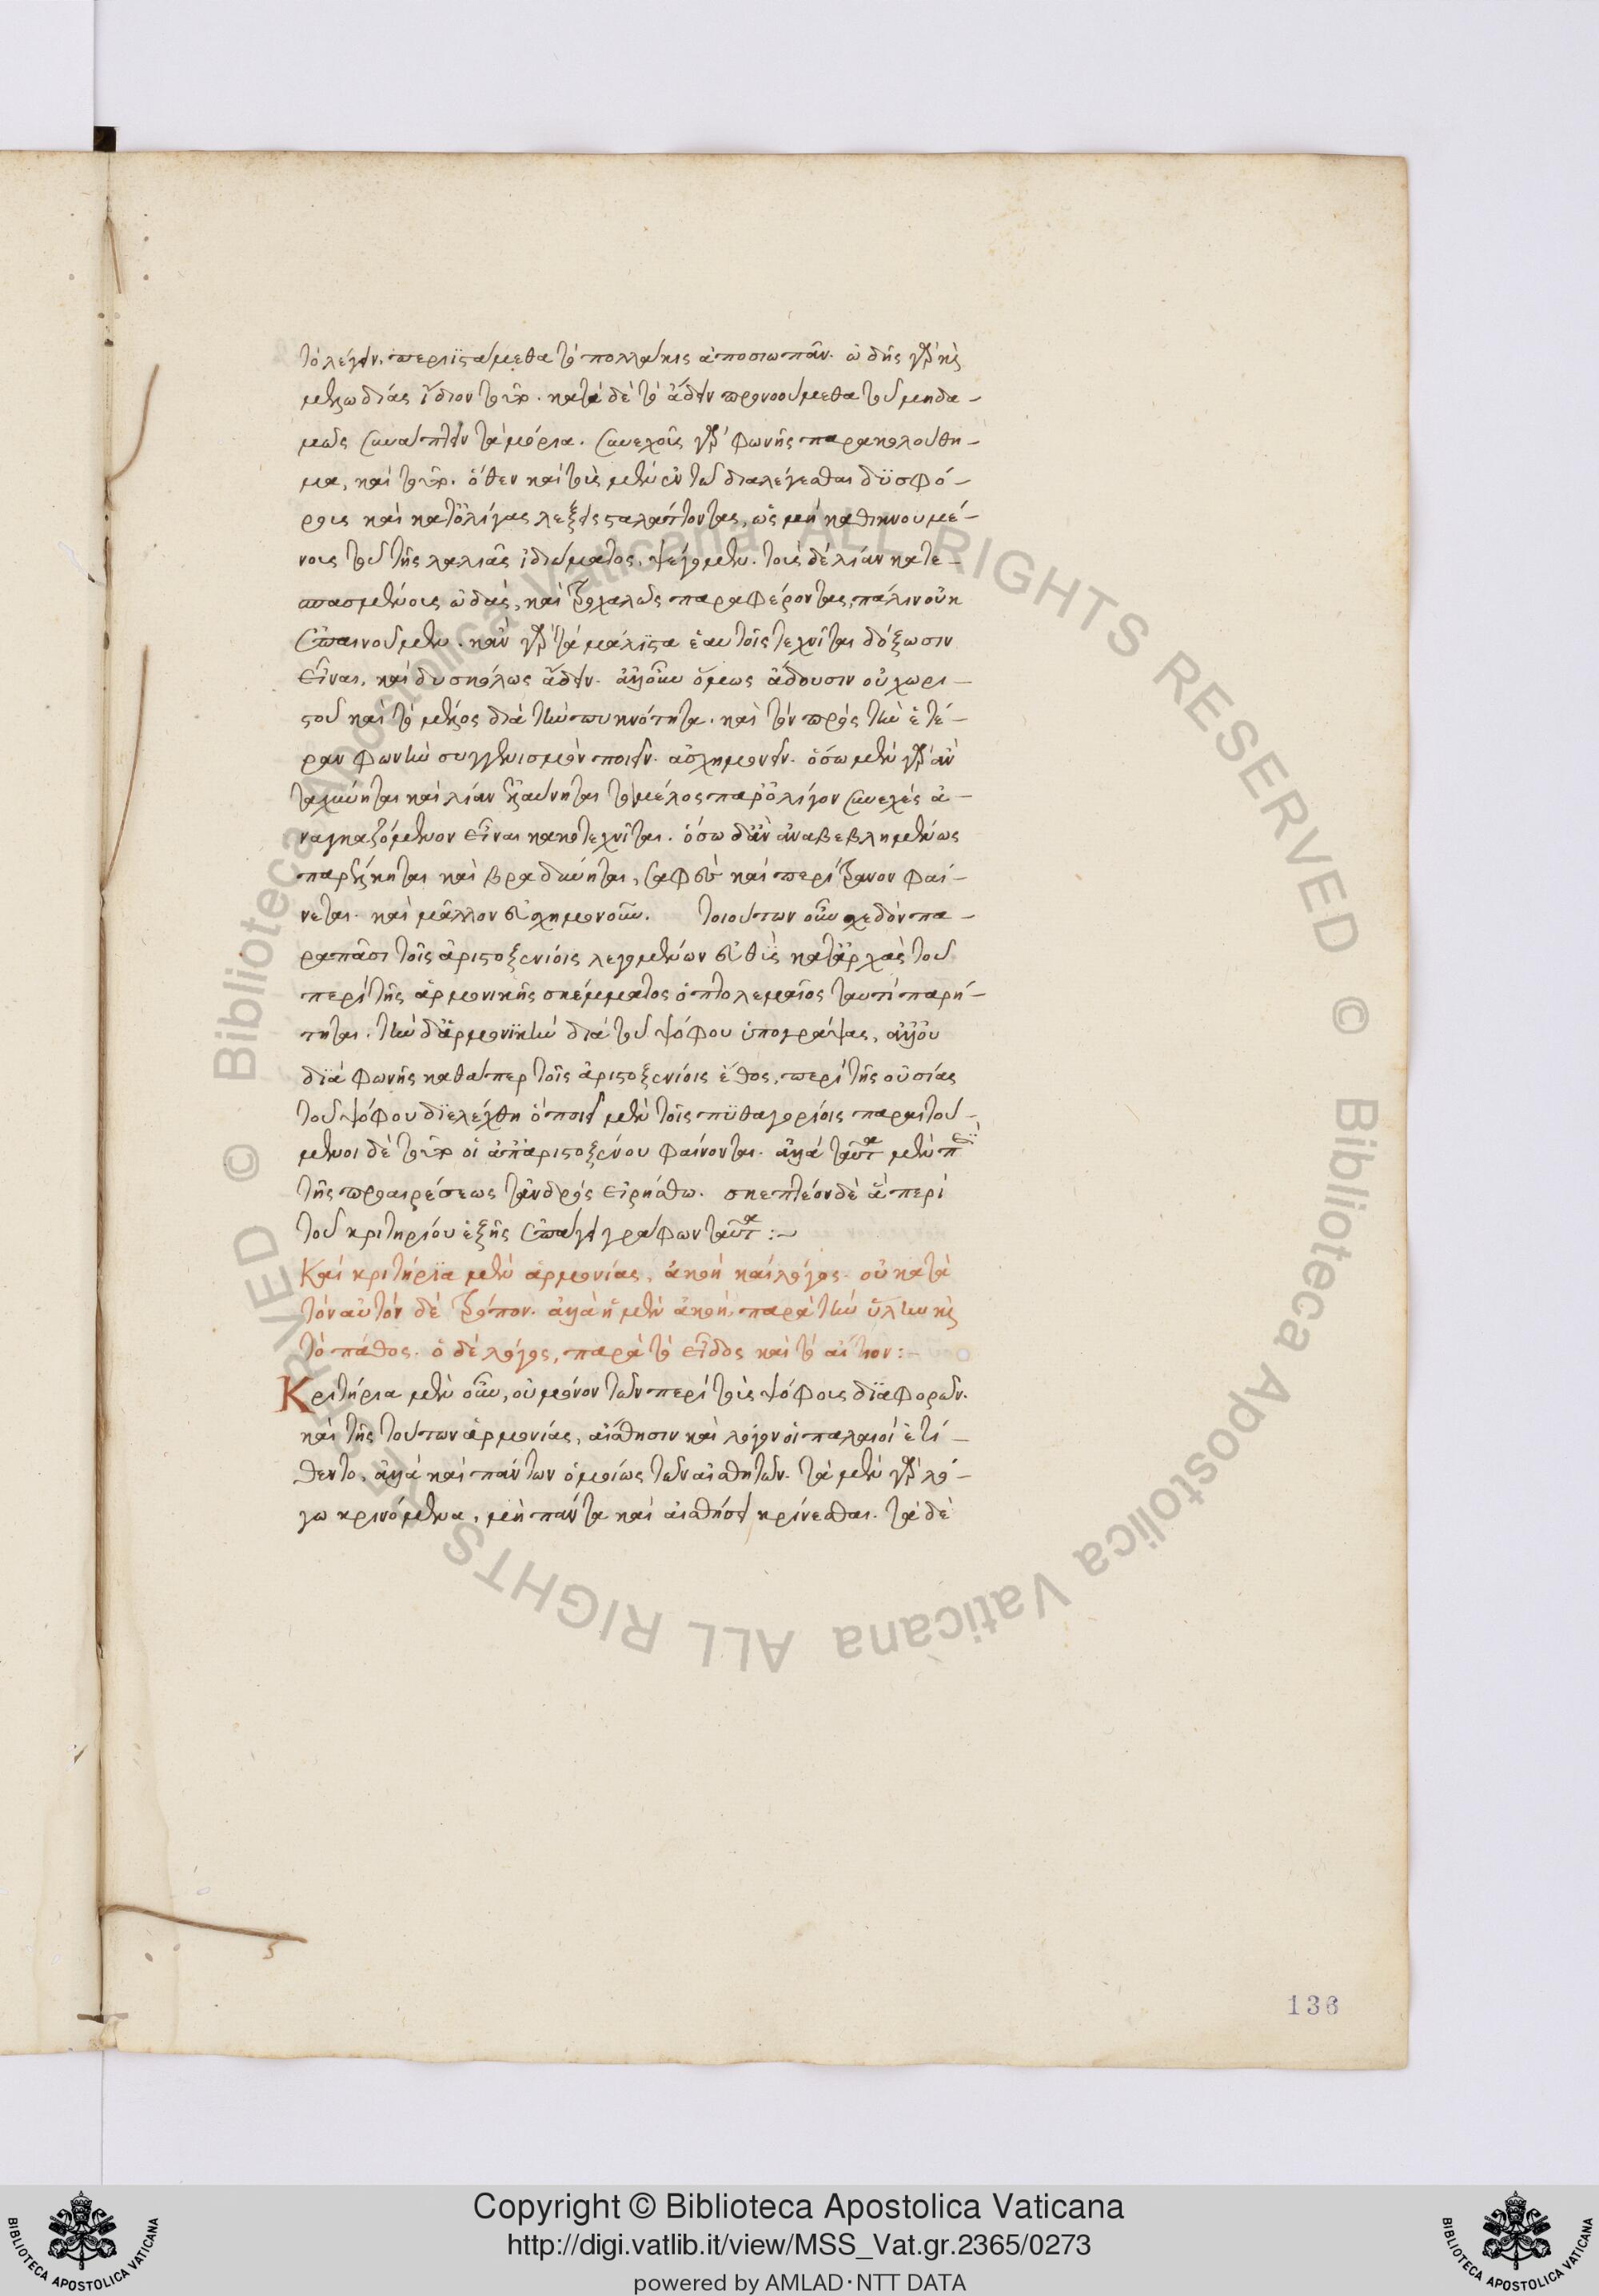 τὸ λέγειν. περιϊστάμεθα τὸ πολλάκις ἀποσιωπᾶν. ὠδῆς γὰρ καὶ
μελωδίας ἴδιον τοῦτο. κατὰ δὲ τὸ ἄδειν προνοούμεθα τοῦ μηδα-
μῶς συνάπτειν τὰ μόρια. συνεχοῦς γὰρ φωνῆς παρακολούθη-
μα, καὶ τοῦτο. ὅθεν καὶ τοὺς μὲν ἐν τῶ διαλέγεσθαι δϋσφό-
ρους καὶ κατολίγας λέξεις σαλάττοντας, ὡς μὴ καθικνουμέ-
νους τοῦ τῆς λαλιᾶς ἰδιώματος, ψέγομεν. τοὺς δὲ λίαν κατε-
σπασμένους ὠδὰς, καὶ τροχαλῶς παραφέροντας, πάλιν οὐκ
ἐπαινοῦμεν. κἂν γὰρ τὰ μάλιστα ἑαυτοῖς τεχνῖται δόξωσιν
εἶναι, καὶ δυσκόλως ἄδειν. ἀλλοὖν ὅμως ἄδουσιν οὐ χωρι-
στοῦ καὶ τὸ μέλος διὰ τὴν πυκνότητα. καὶ τὸν πρὸς τὴν ἑτέ-
ραν φωνὴν συγγενισμὸν ποιεῖν. ἀσχημονεῖν. ὅσω μὲν γὰρ ἂν
ταχύνηται καὶ λίαν ἐλαύνηται τὸ μέλος παρὀλίγον συνεχὲς ἀ-
ναγκαζόμενον εἶναι κακοτεχνῖται. ὅσω δἂν ἀναβεβλημένως
παρέλκηται καὶ βραδύνηται, σαφὲς καὶ περίτρανον φαί-
νεται. καὶ μᾶλλον εὐσχημονοῦν. τοιούτων οὖν σχεδὸν πα-
ραπᾶσι τοῖς ἀριστοξενίοις λεγομένων εὐθὺς κατἀρχὰς τοῦ
περὶ τῆς ἁρμονικῆς σκέμματος ὁ πτολεμαῖος ταυτὶ παρή-
τηται. τὴν δἁρμονϊκὴν διὰ τοῦ ψόφου ὑπογράψας, ἀλλοὐ
διὰ φωνῆς καθάπερ τοῖς ἀριστοξενίοις ἔθος, περὶ τῆς οὐσίας
τοῦ ψόφου διελέχθη ὁποιεῖ μὲν τοῖς πϋθαγορίοις παραιτού-
μενοι δὲ τοῦτο οἱ ἀπἀριστοξένου φαίνονται. ἀλλὰ ταῦτα μὲν περὶ
τῆς προαιρέσεως τἀνδρὸς εἰρήσθω. σκεπτέον δὲ ἃ περὶ
τοῦ κριτηρίου ἑξῆς ἐπάγει γράφων ταῦτα :~
Καὶ κριτήρϊα μὲν ἁρμονίας, ἀκοὴ καὶ λόγος. οὐ κατὰ
τὸν αὐτὸν δὲ τρόπον. ἀλλὰ ἡ μὲν ἀκοὴ, παρὰ τὴν ὕλην καὶ
τὸ πάθος. ὁ δὲ λόγος, παρὰ τὸ εἶδος καὶ τὸ αἴτιον :-
Κριτήρια μὲν οὖν, οὐ μόνον τῶν περὶ τοὺς ψόφους διαφορῶν.
καὶ τῆς τούτων ἁρμονίας, αἴσθησιν καὶ λόγον οἱ παλαιοὶ ἐτί-
θεντο. ἀλλὰ καὶ πάντων ὁμοίως τῶν αἰσθητῶν. τὰ μὲν γὰρ λό-
γω κρινόμενα, μὴ πάντα καὶ αἰσθήσει κρίνεσθαι. τὰ δὲ
136
Copyright © Biblioteca Apostolica Vaticana
http://digi.vatlib.it/view/MSS_Vat.gr.2365/0273
powered by AMLAD·NTT DATA